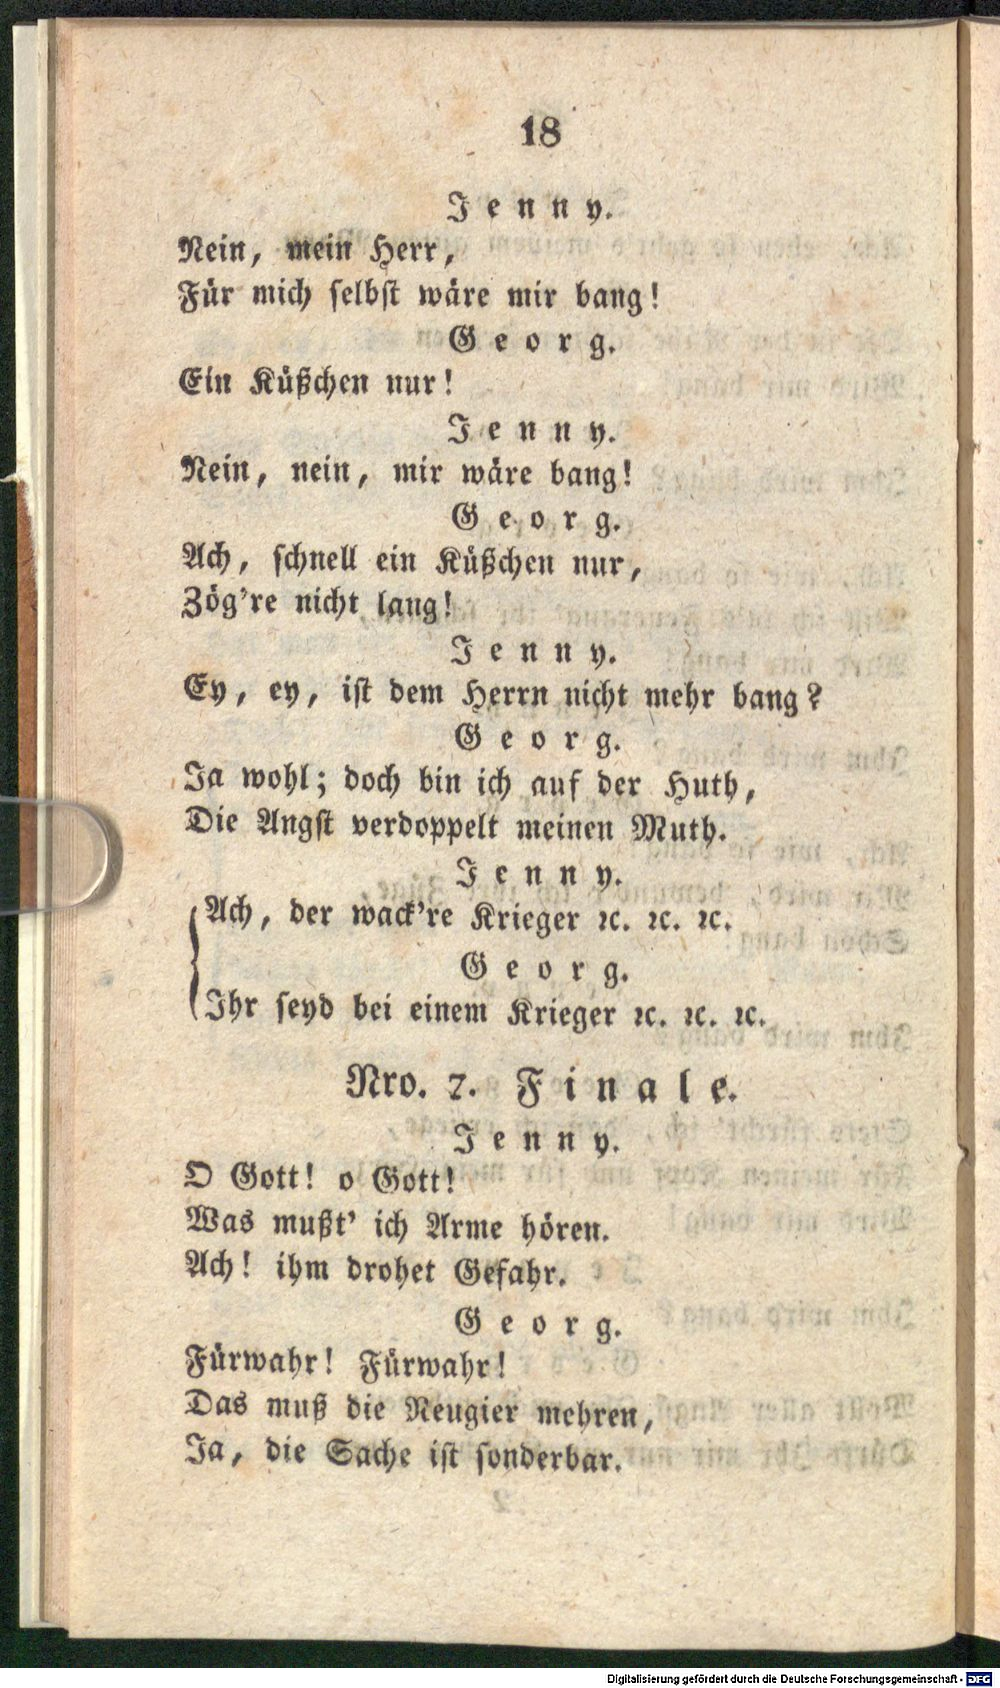 18
Jenny.
Nein, mein Herr,
Für mich selbst wäre mir bang!
Georg.
Ein Küßchen nur!
Jenny.
Nein, nein, mir wäre bang!
Georg.
Ach, schnell ein Küßchen nur,
Zög're nicht lang!
Jenny.
Ey, ey, ist dem Herrn nicht mehr bang?
Georg.
Ja wohl; doch bin ich auf der Huth,
Die Angst verdoppelt meinen Muth.
Jenny.
Ach, der wack're Krieger ꝛc. ꝛc. ꝛc.
Georg.
Ihr seyd bei einem Krieger ꝛc. ꝛc. ꝛc.
Nro. 7. Finale.
Jenny.
O Gott! o Gott!
Was mußt' ich Arme hören.
Ach! ihm drohet Gefahr.
Georg.
Fürwahr! Fürwahr!
Das muß die Neugier mehren,
Ja, die Sache ist sonderbar.
Digitalisierung gefördert durch die Deutsche Forschungsgemeinschaft - DFG